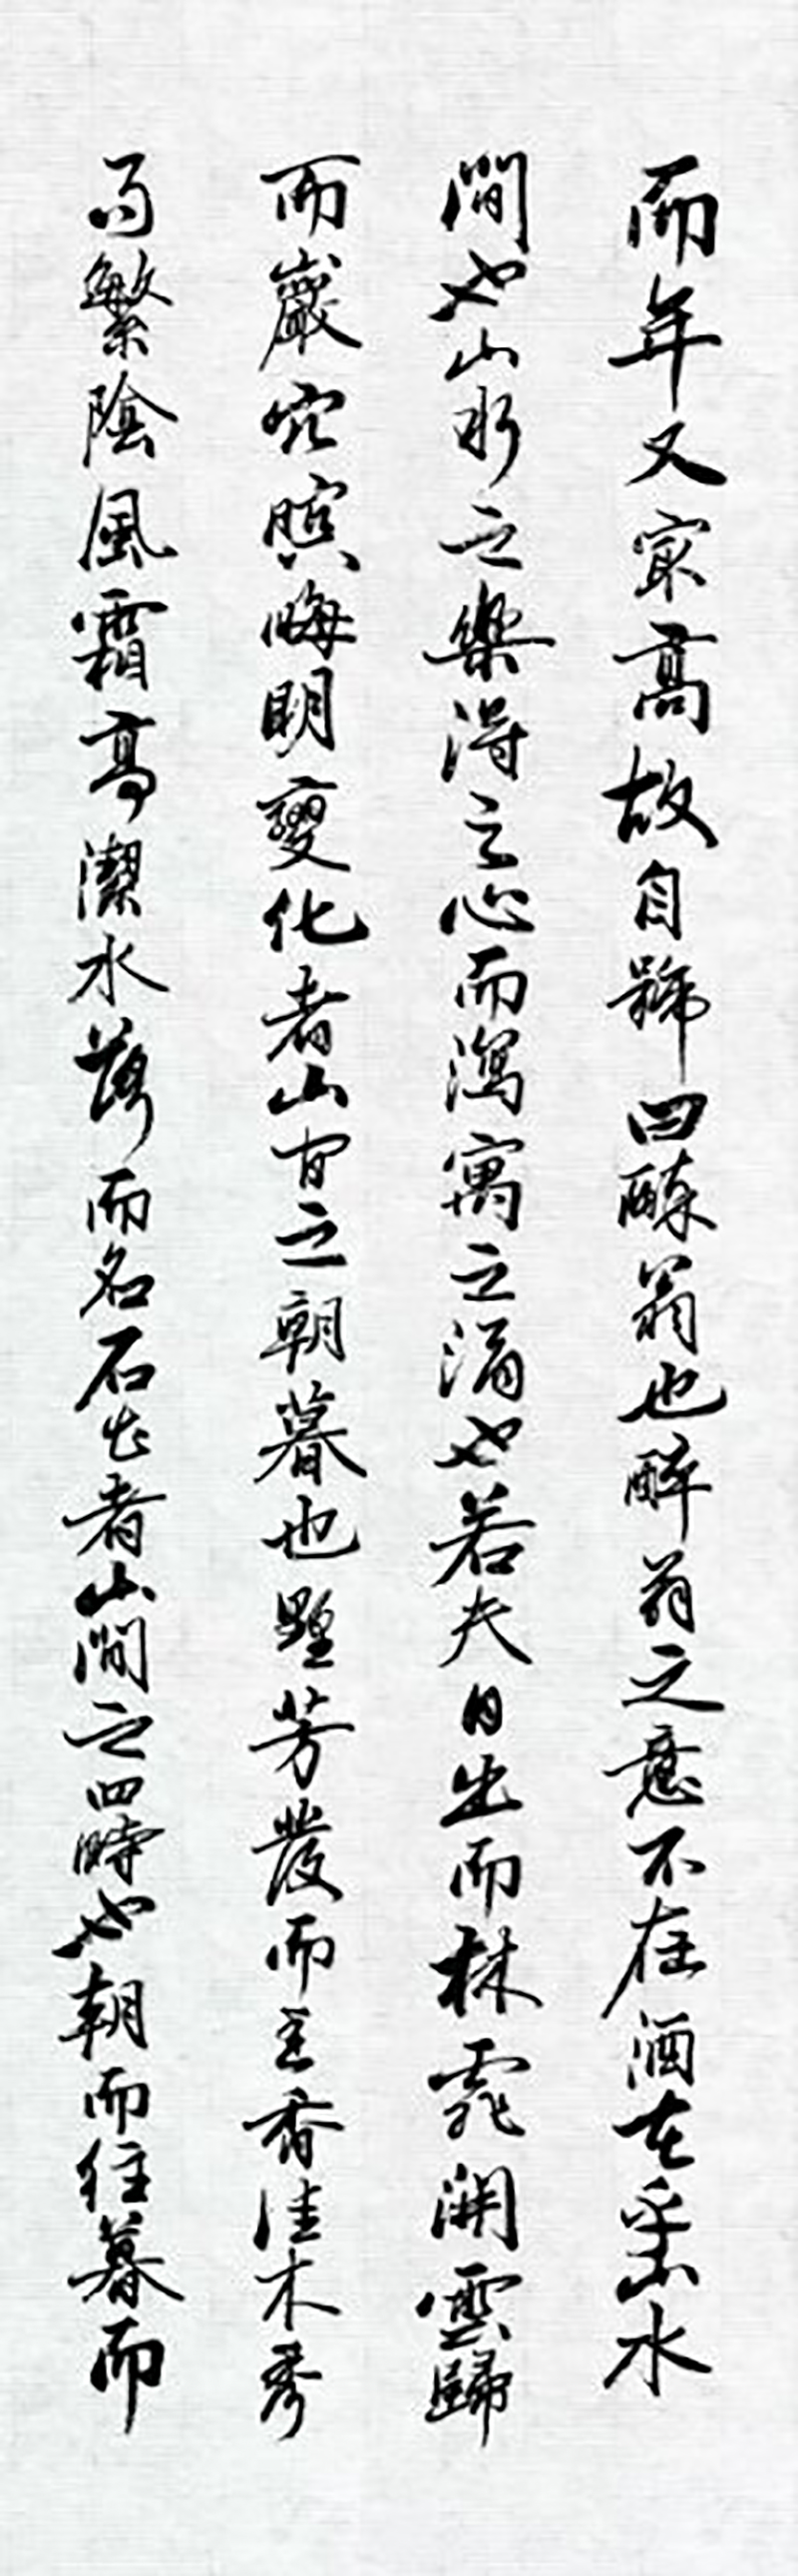 而年又最高故自號曰醉翁也醉翁之意不在酒在乎山水
間也山水之樂得之心而瀉寓之酒也若夫日出而林霏開雲歸
而巖穴暝晦明變化者山間之朝暮也野芳發而幽香佳木秀
而繁陰風霜高潔水落而名石出者山間之四時也朝而往暮而